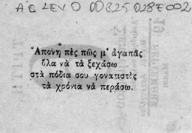 AGLEVD DD825D28F002
Ἄπονη πὲς πῶς μ' ἀγαπᾶς
ὅλα νὰ τὰ ξεχάσω
στὰ πόδια σου γονατιστὲς
τὰ χρόνια νὰ περάσω.